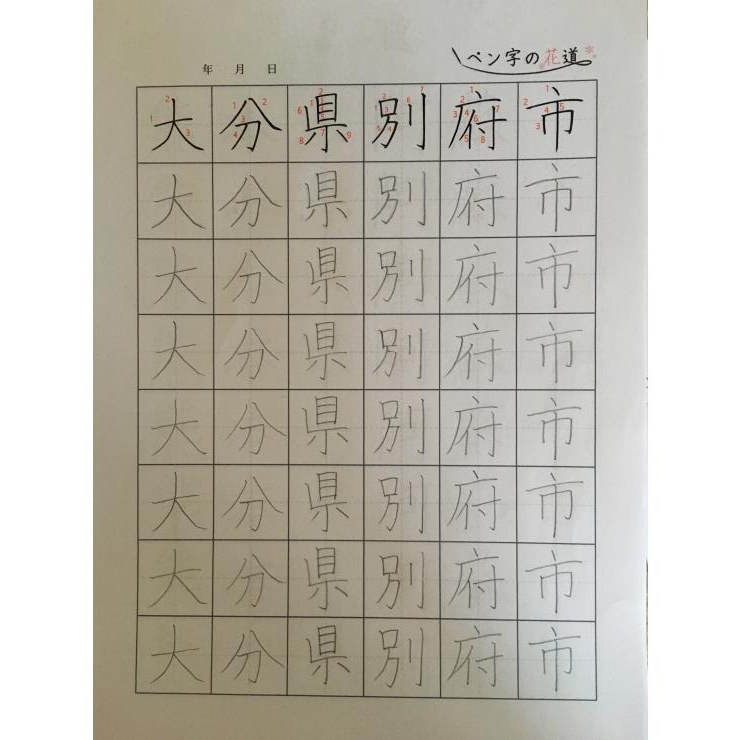 年 月 日
ペン字の花道
大分県別府市
大分県別府市
大分県別府市
大分県別府市
大分県別府市
大分県別府市
大分県別府市
大分県別府市